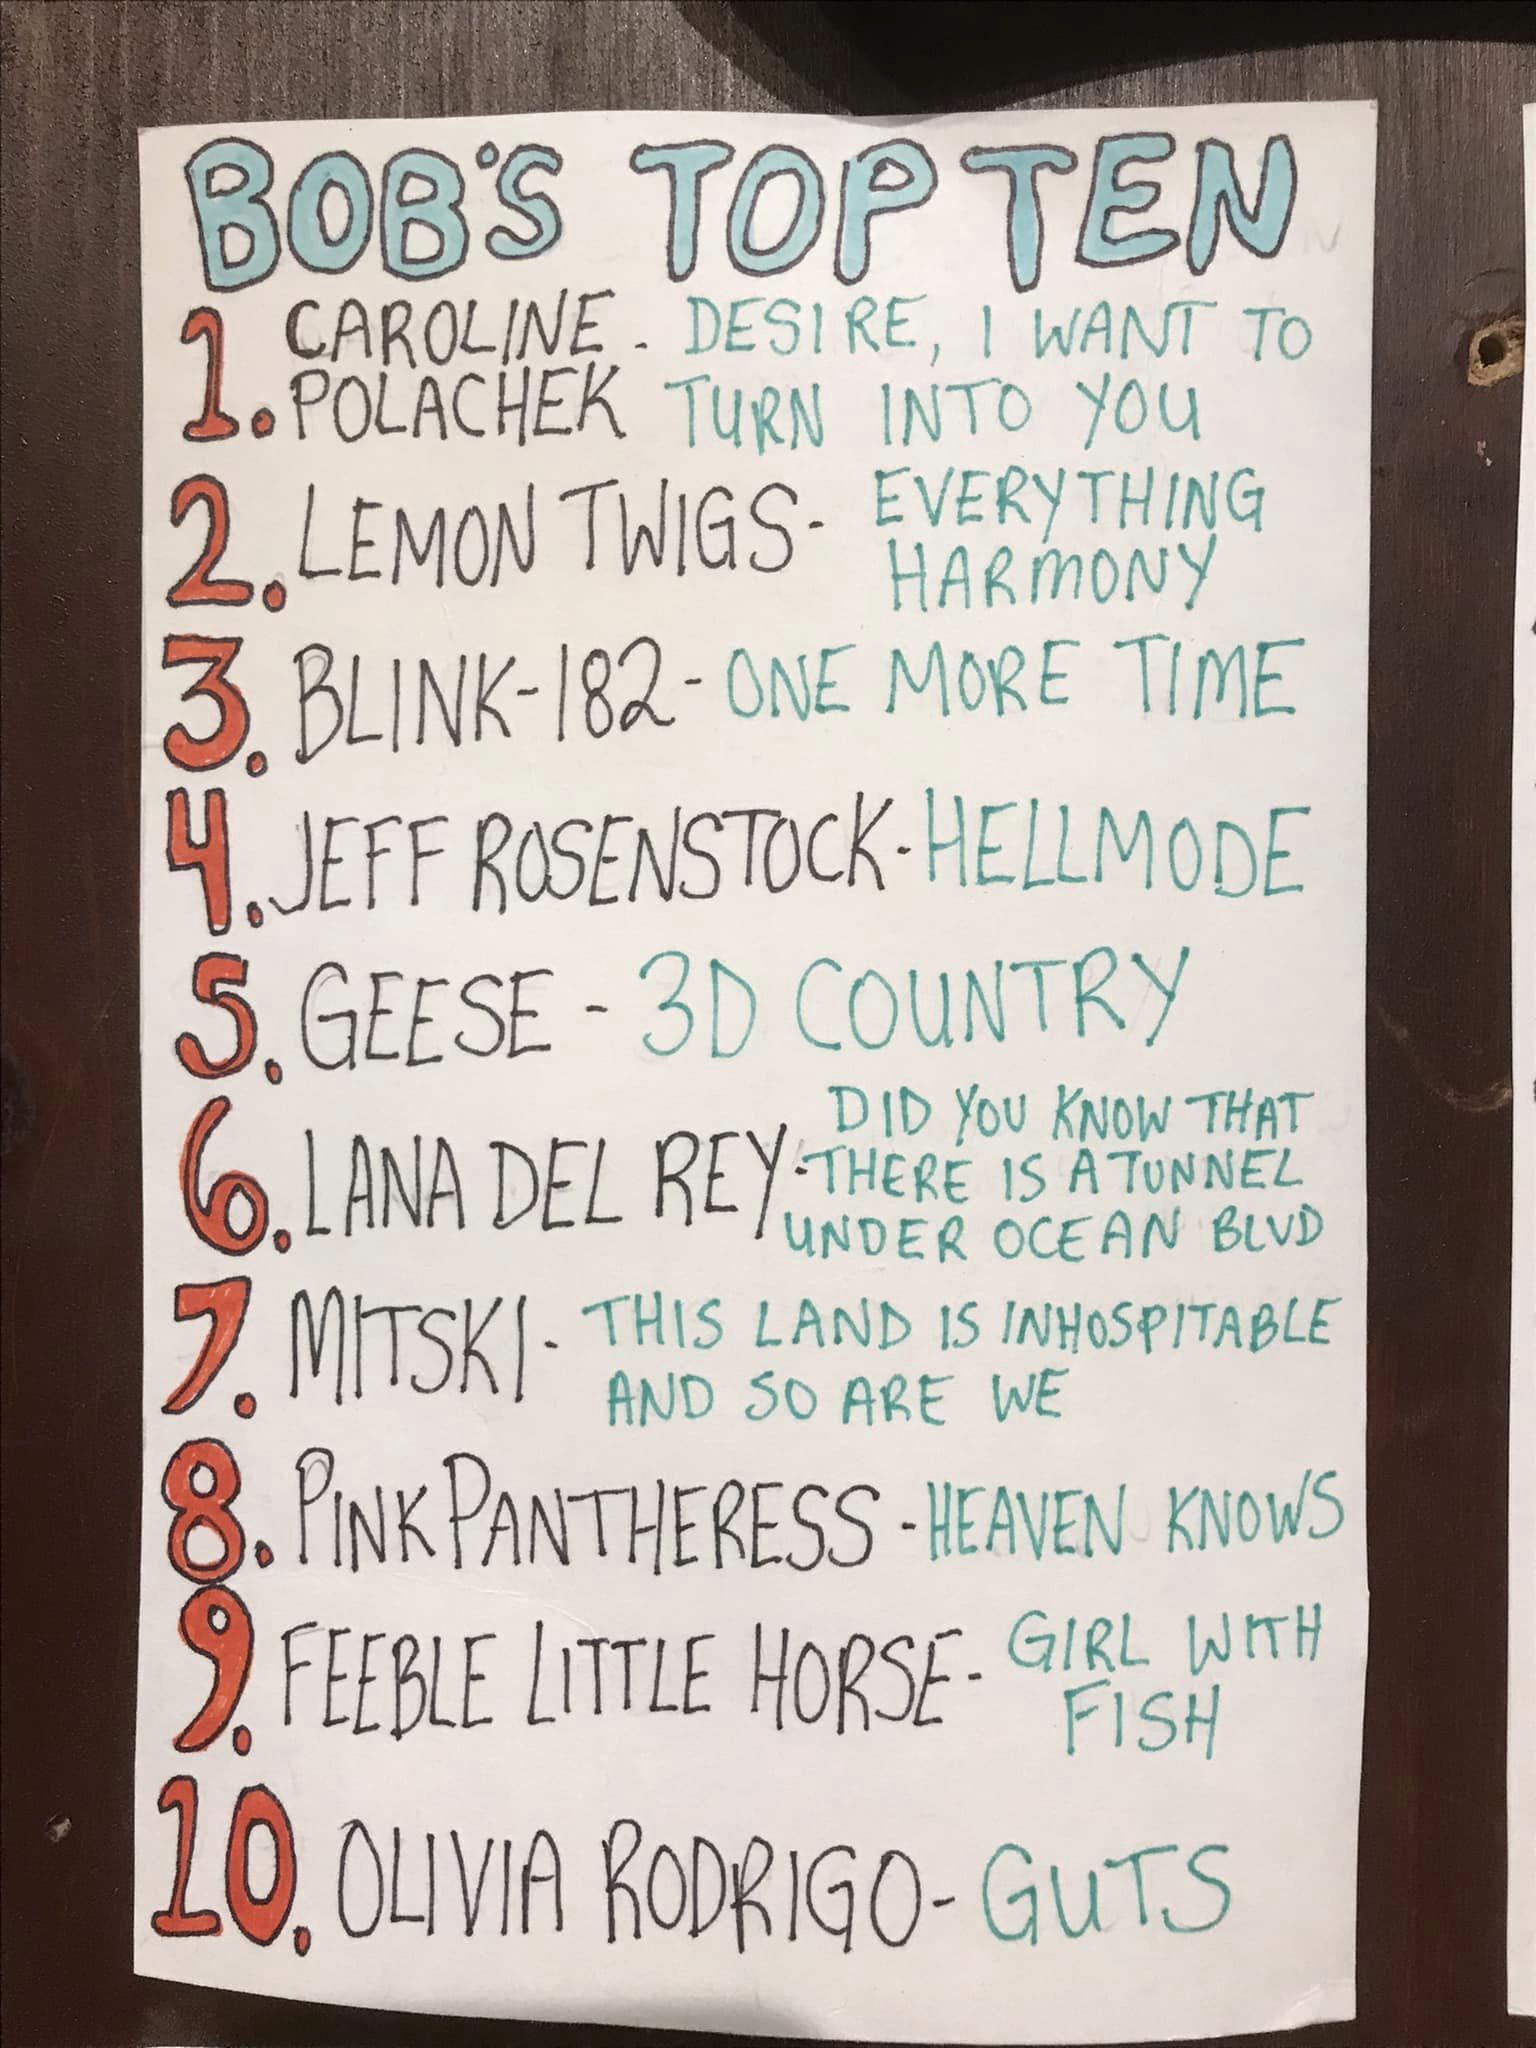 BOB'S TOP TEN
1. CAROLINE POLACHEK - DESIRE, I WANT TO
TURN INTO YOU
2. LEMON TWIGS - EVERYTHING
HARMONY
3. BLINK-182 - ONE MORE TIME
4. JEFF ROSENSTOCK - HELLMODE
5. GEESE - 3D COUNTRY
6. LANA DEL REY - DID YOU KNOW THAT
THERE IS A TUNNEL
UNDER OCEAN BLVD
7. MITSKI - THIS LAND IS INHOSPITABLE
AND SO ARE WE
8. PINKPANTHERESS - HEAVEN KNOWS
9. FEEBLE LITTLE HORSE - GIRL WITH
FISH
10. OLIVIA RODRIGO - GUTS